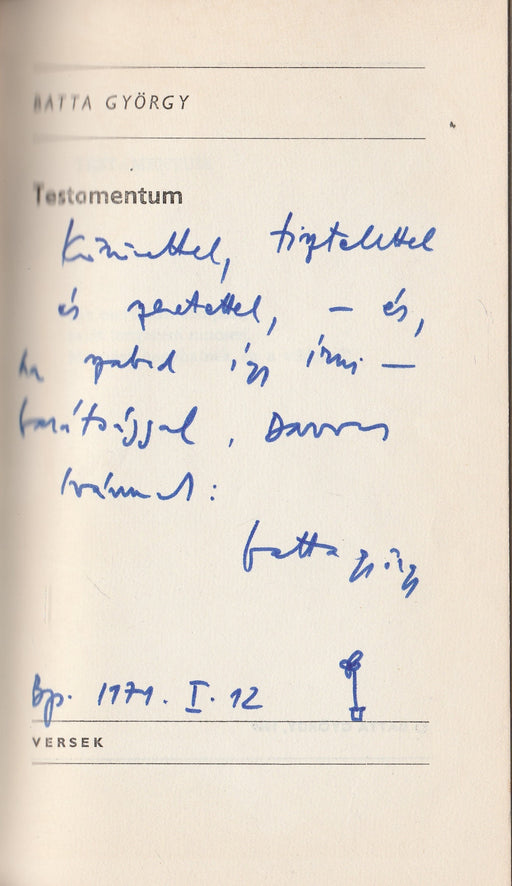 BATTA GYÖRGY
Testamentum
Köszönettel, tisztelettel
és szeretettel, – és,
ha szabad így írni –
barátsággal, Darvas
Ivánnak:
batta györgy
Bp. 1971. I. 12
VERSEK